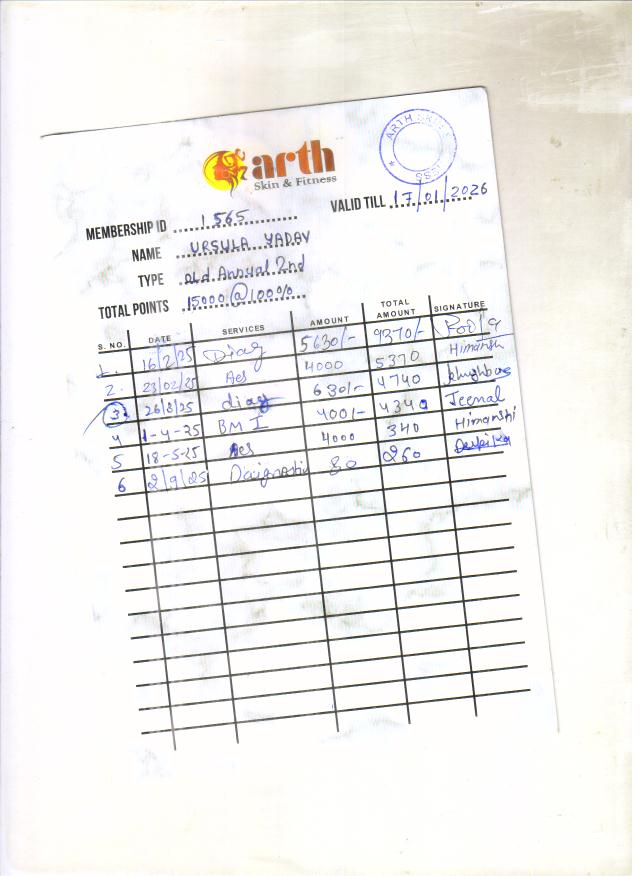 ARTH SKIN
NESS
arth
Skin & Fitness
MEMBERSHIP ID 1565
VALID TILL 17/01/2026
NAME URSULA YADAV
TYPE Old Annual 2nd
TOTAL POINTS 15000 @ 100%
S. NO. DATE SERVICES AMOUNT TOTAL AMOUNT SIGNATURE
1. 16/2/25 Diag 5630/- 9370/- Pooja
2. 23/02/25 Aes 4000 5370 Himanshi
3. 26/3/25 diag 630/- 4740 khushboo
4 1-4-25 BMI 400/- 4340 Jeenal
5 18-5-25 Aes 4000 340 Himanshi
6 2/9/25 Daignostic 80 260 Deepika